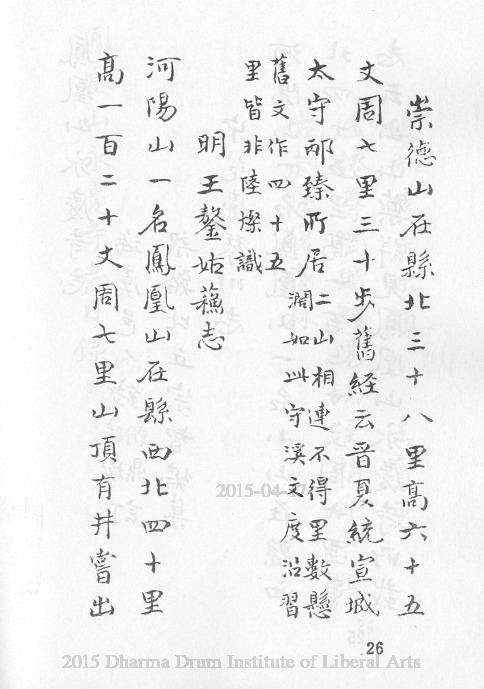 崇德山在縣北三十八里高六十五
丈周七里三十步舊經云晉夏統宣城
太守邴臻所居二山相連不得里數懸
濶如此守溪文度沿習
舊文作四十五
里皆非陸燦識
明王鏊姑蘇志
河陽山一名鳳凰山在縣西北四十里
高一百二十丈周七里山頂有井嘗出
26
2015-04-27
2015 Dharma Drum Institute of Liberal Arts